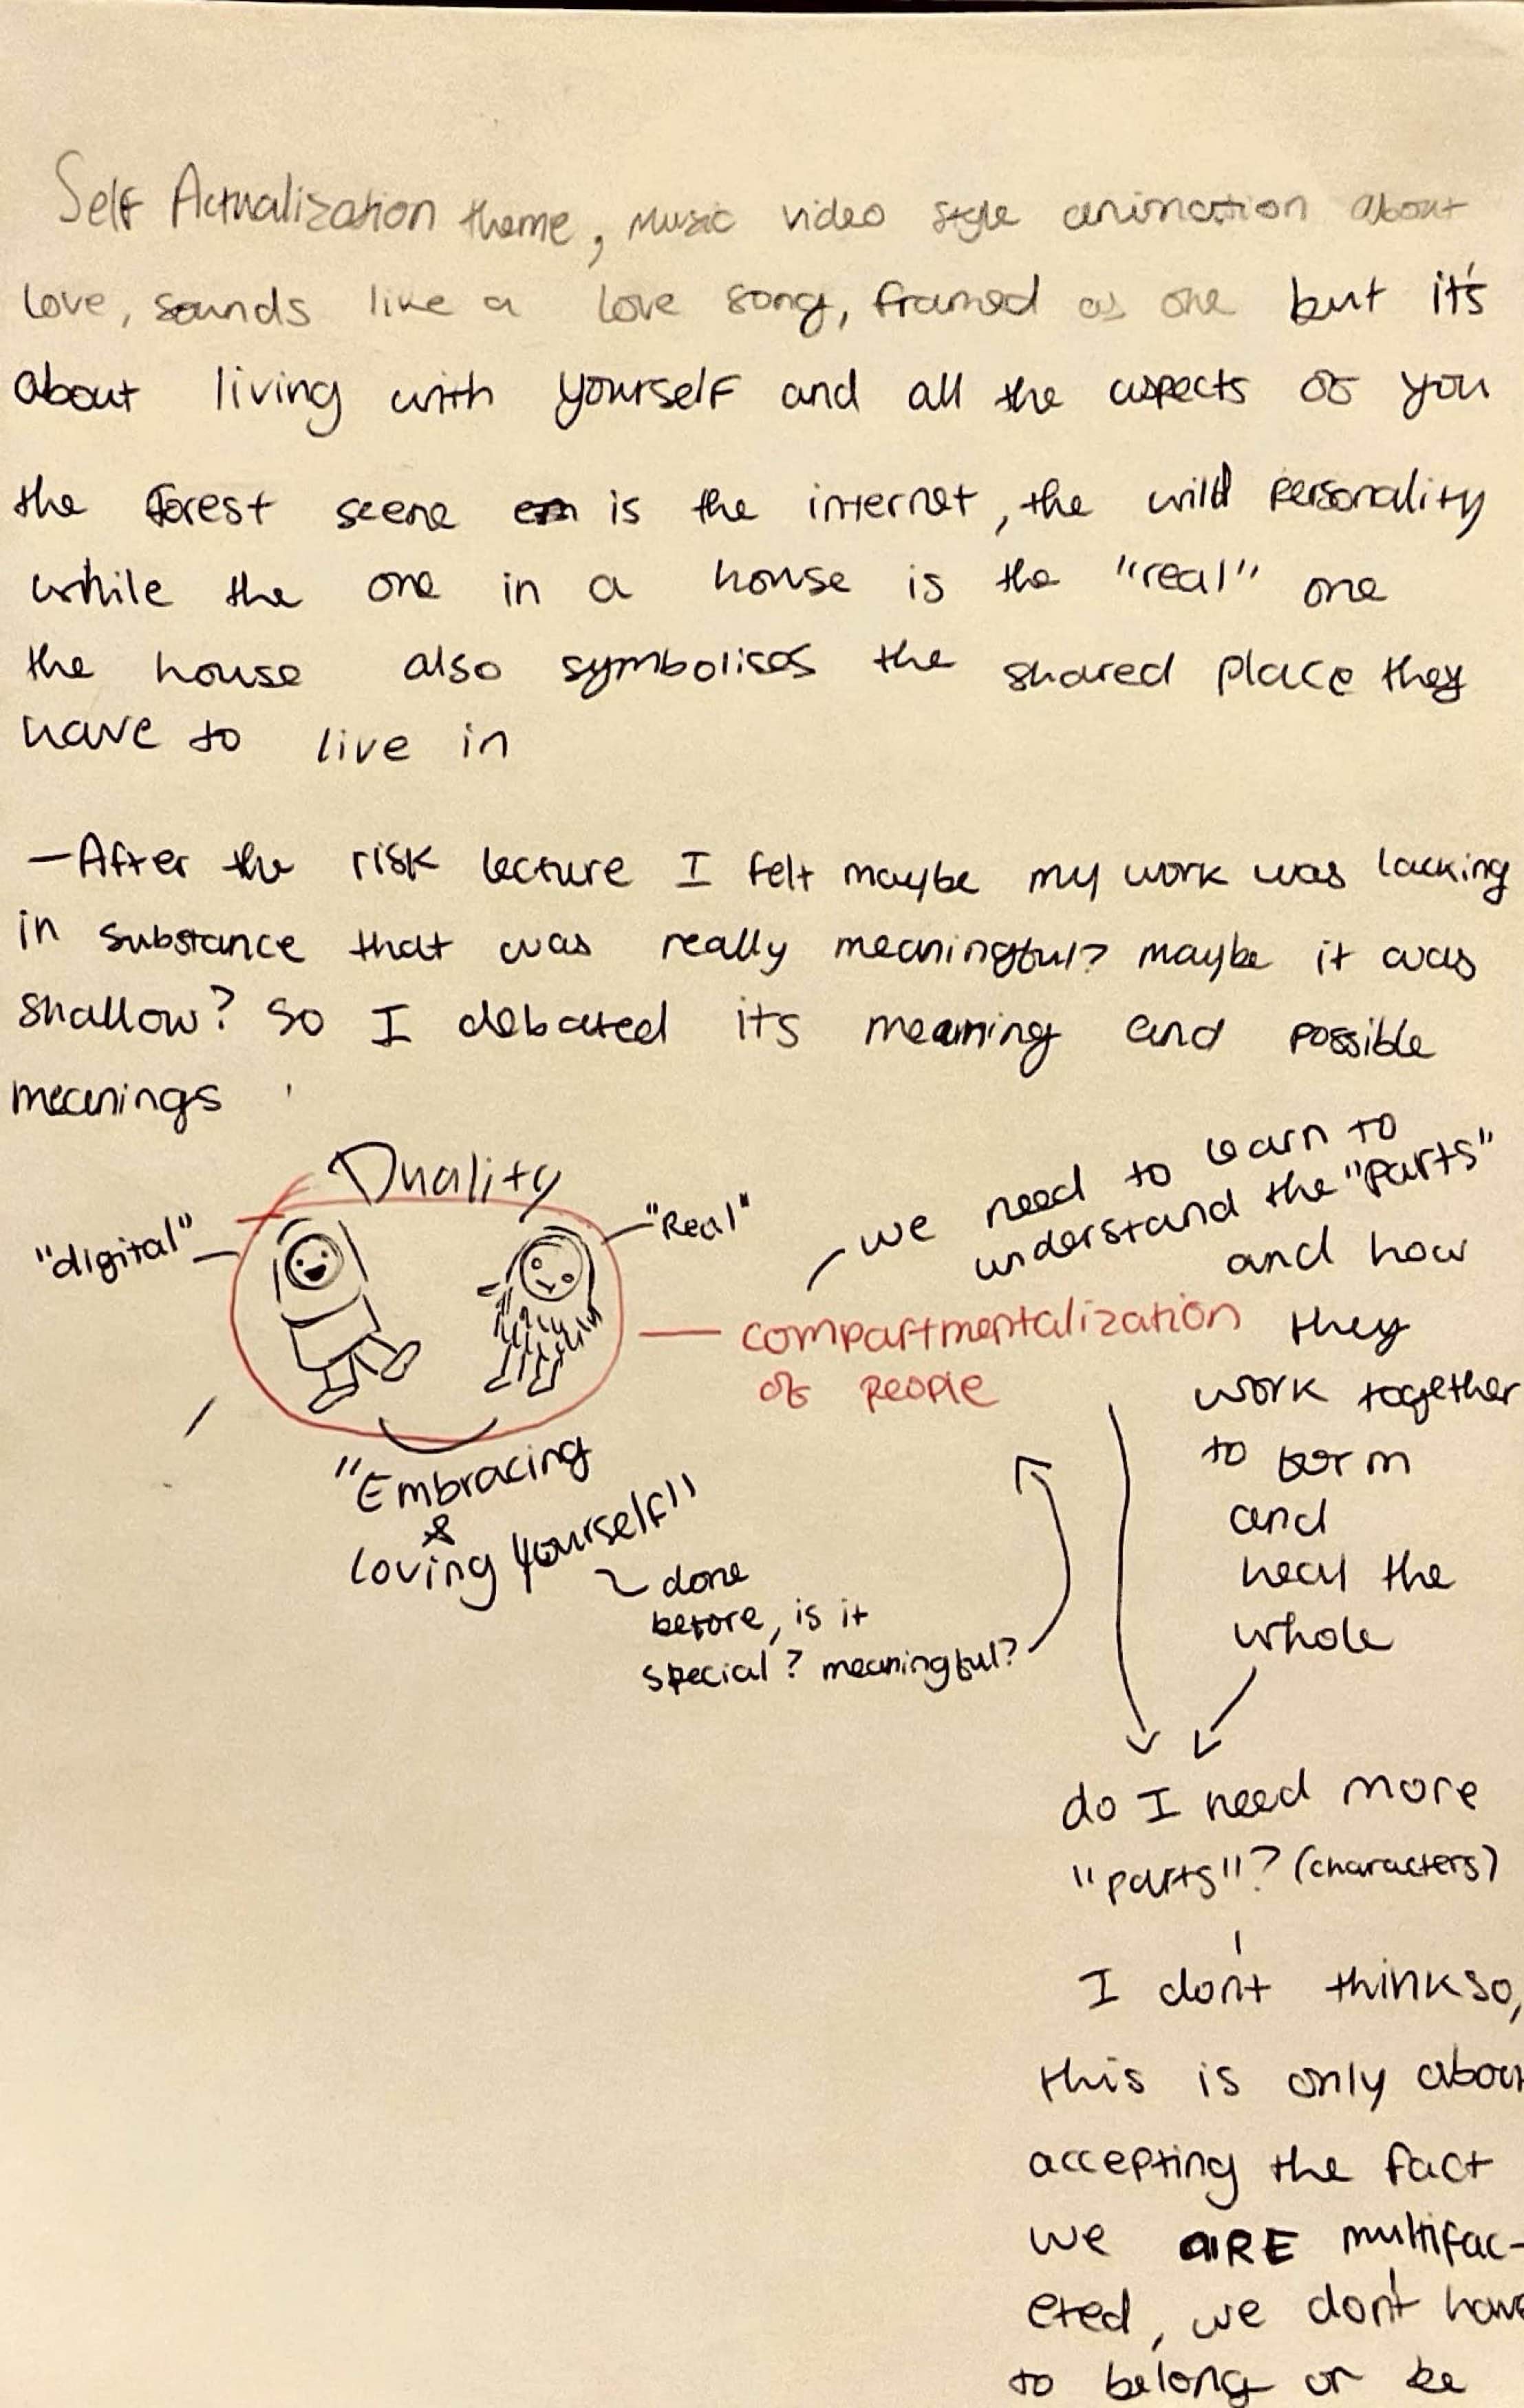 Self Actualization theme, music video style animation about
love, sounds like a love song, framed as one but it's
about living with yourself and all the aspects of you
the forest scene is the internet, the wild personality
while the one in a house is the "real" one
the house also symbolises the shared place they
have to live in
—After the risk lecture I felt maybe my work was lacking
in substance that was really meaningful? maybe it was
shallow? So I debated its meaning and possible
meanings
Duality
"digital"
"Real"
"Embracing
&
loving yourself"
done
before, is it
special? meaningful?
compartmentalization
of people
we need to learn to
understand the "parts"
and how
they
work together
to form
and
heal the
whole
do I need more
"parts"? (characters)
I don't think so,
this is only abou
accepting the fact
we aRE multifac-
eted, we don't have
to belong or be